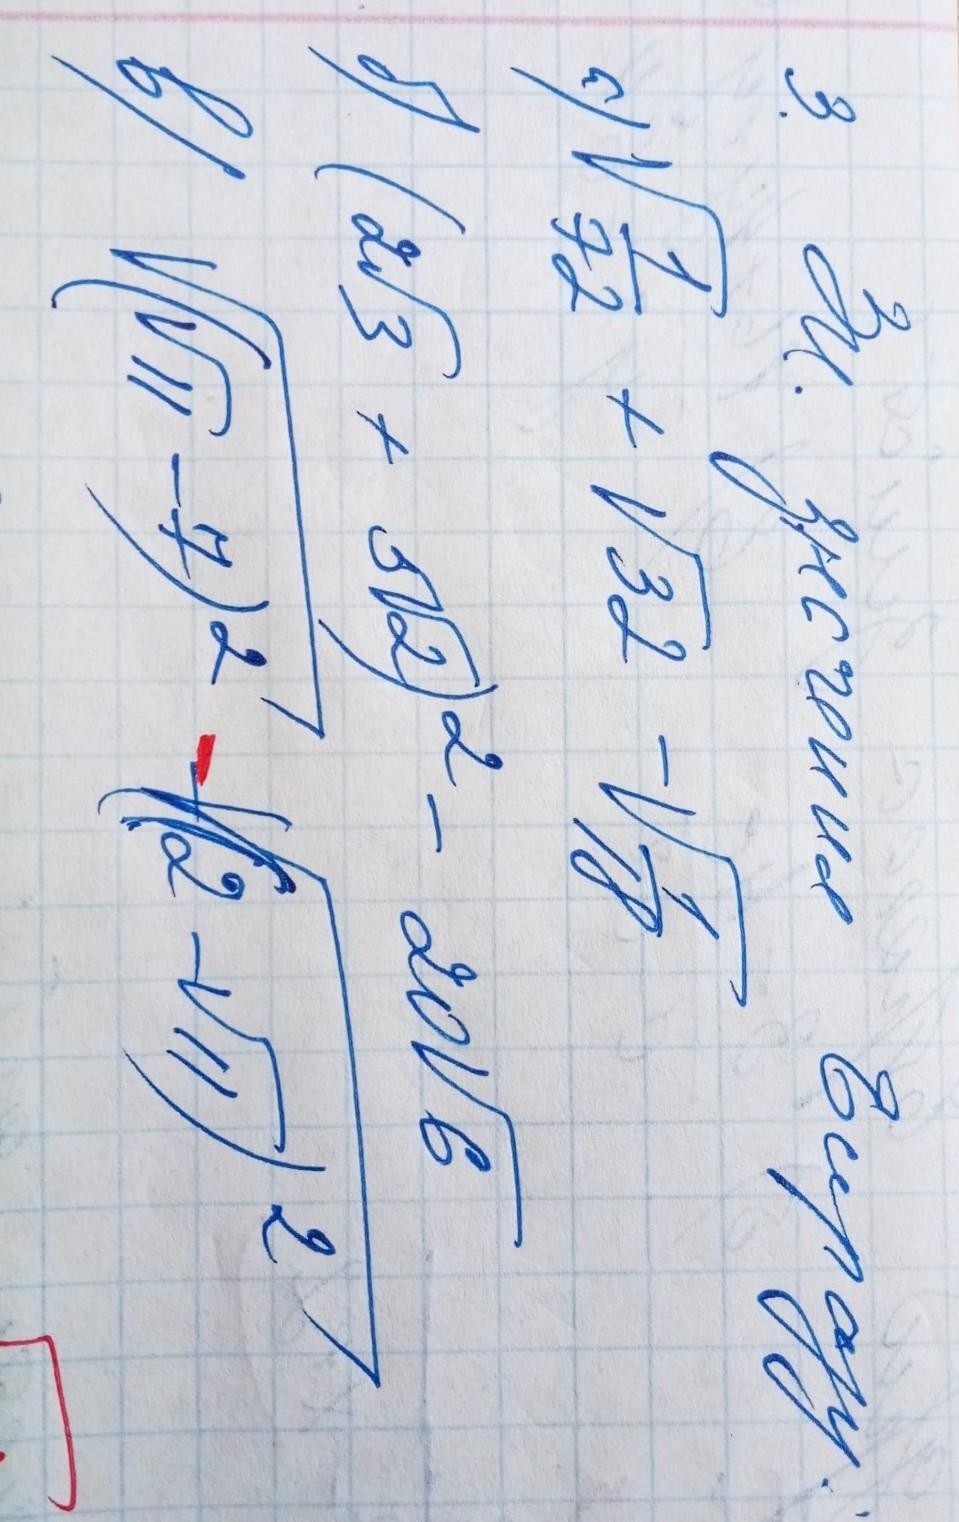 3. Зн. значения выраж.
а) √(1/72) + √32 - √(1/8)
б) (2√3 + 5√2)² - 20√6
в) √(√11 - 7)² - √(2 - √11)²